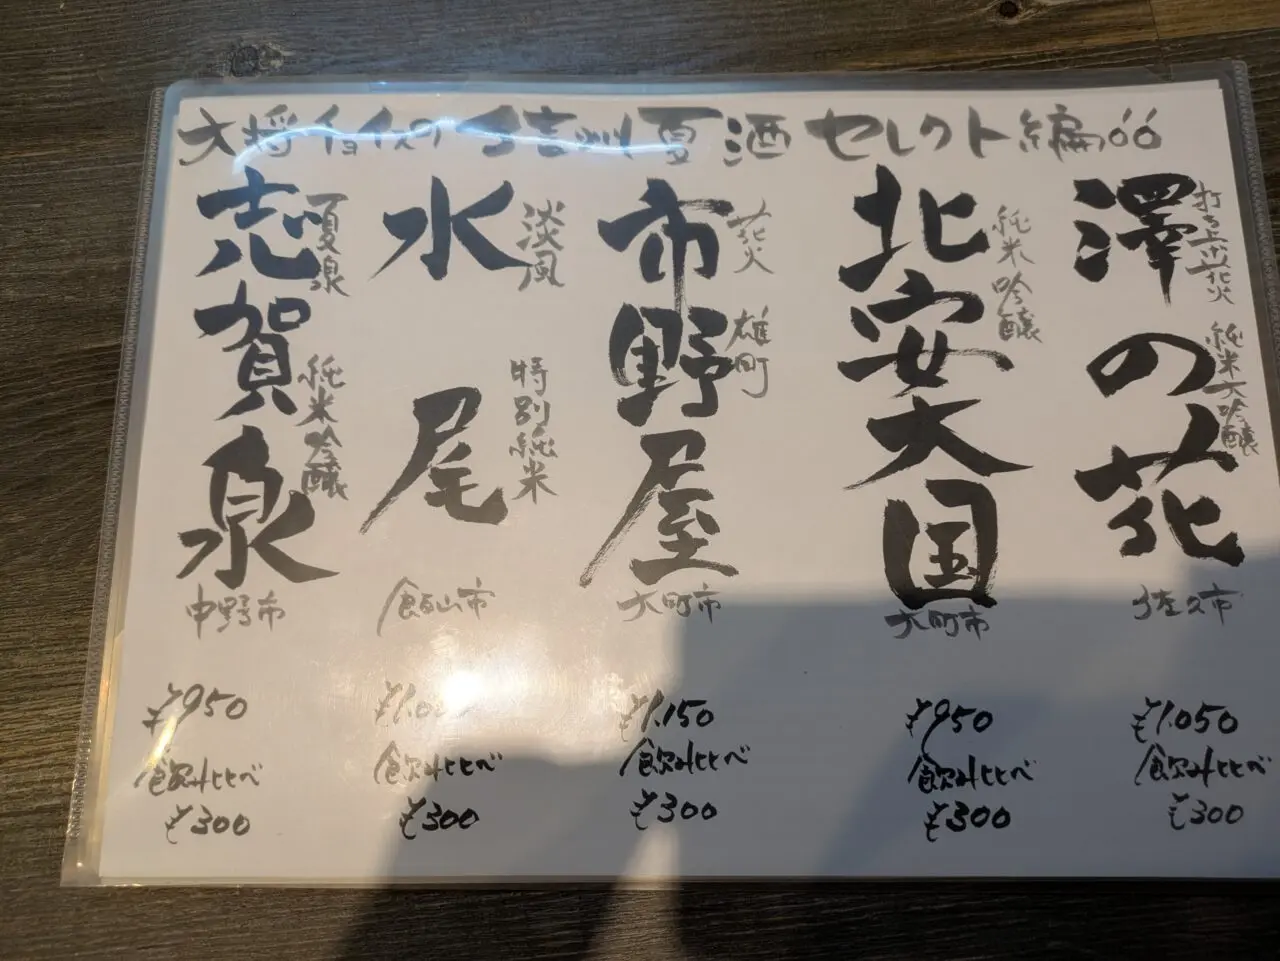 大将 の 信州夏酒 セレクト編
澤の花
打ち上げ花火 純米大吟醸
佐久市
¥1,050
飲み比べ
¥300
北安大国
純米吟醸
大町市
¥950
飲み比べ
¥300
市野屋
花火 雄町
大町市
¥1,150
飲み比べ
¥300
水尾
淡風 特別純米
飯山市
飲み比べ
¥300
志賀泉
夏泉 純米吟醸
中野市
¥950
飲み比べ
¥300